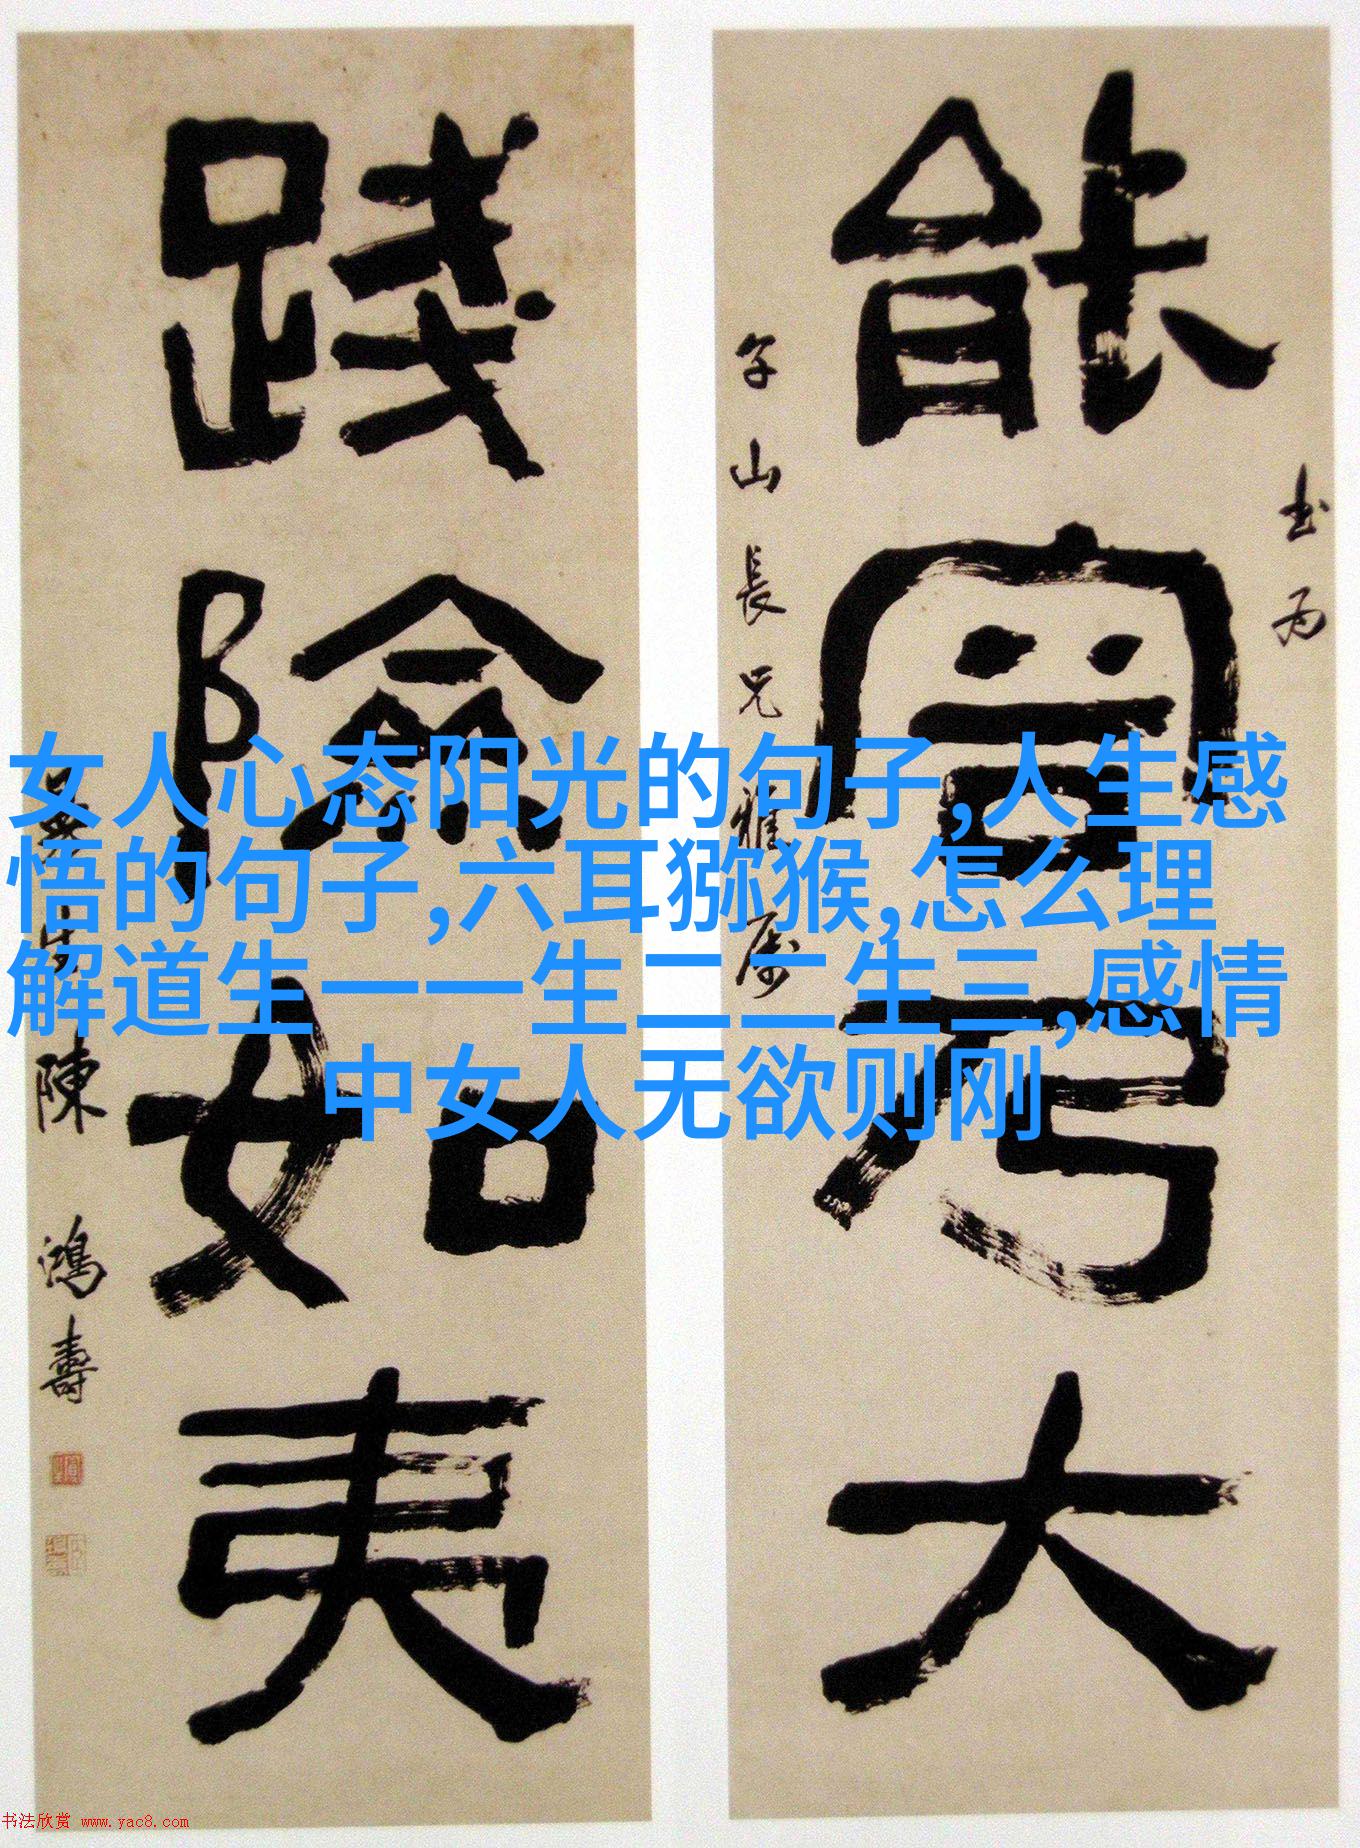 女人心态阳光的句子,人生感
悟的句子,六耳猕猴,怎么理
解道生一一生二二生三,感情
中女人无欲则刚
能容乃大
山長兄雅屬
踐險如夷
曼生陳鴻壽
书法欣赏 www.yac8.com